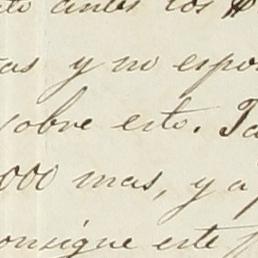 antes los
y no espo
sobre esto.
000 mas, y a
onsigne este